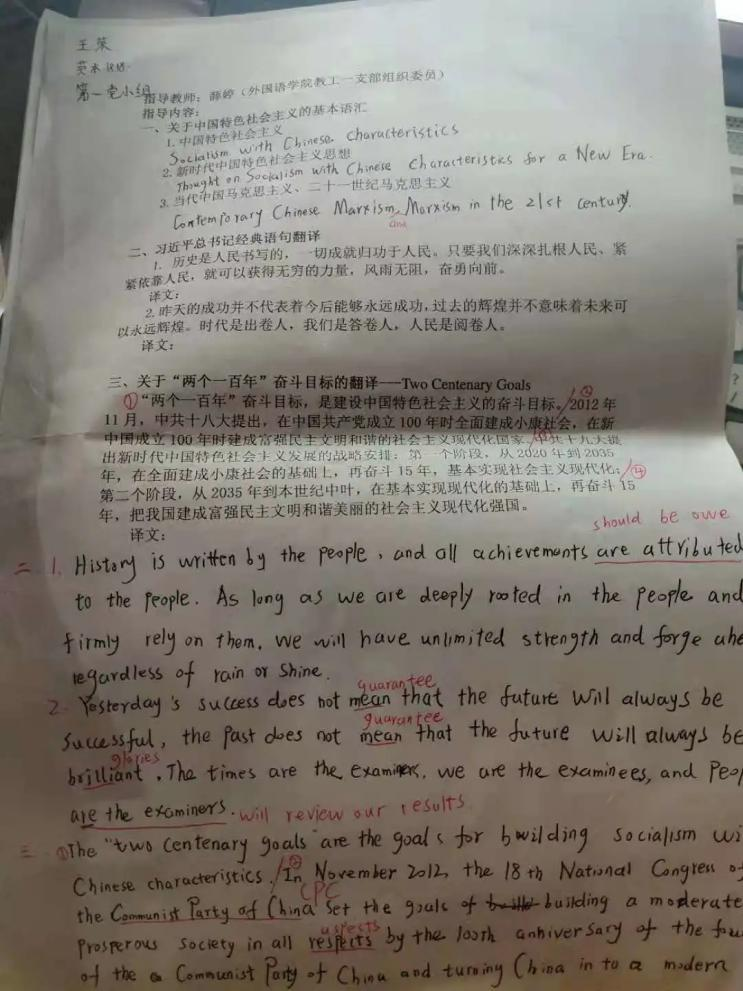 王茱
英本
第一党小组
指导教师：薛婷（外国语学院教工一支部组织委员）
指导内容：
一、关于中国特色社会主义的基本语汇
1. 中国特色社会主义
Socialism with Chinese characteristics
2. 新时代中国特色社会主义思想
Thought on Socialism with Chinese characteristics for a New Era.
3. 当代中国马克思主义、二十一世纪马克思主义
Contemporary Chinese Marxism, Marxism in the 21st century.
and
二、习近平总书记经典语句翻译
1. 历史是人民书写的，一切成就归功于人民。只要我们深深扎根人民、紧
紧依靠人民，就可以获得无穷的力量，风雨无阻，奋勇向前。
译文：
2. 昨天的成功并不代表着今后能够永远成功，过去的辉煌并不意味着未来可
以永远辉煌。时代是出卷人，我们是答卷人，人民是阅卷人。
译文：
三、关于“两个一百年”奋斗目标的翻译---Two Centenary Goals
①“两个一百年”奋斗目标，是建设中国特色社会主义的奋斗目标。/②2012年
11月，中共十八大提出，在中国共产党成立100年时全面建成小康社会，在新
中国成立100年时建成富强民主文明和谐的社会主义现代化国家。/③中共十九大提
出新时代中国特色社会主义发展的战略安排：第一个阶段，从2020年到2035
年，在全面建成小康社会的基础上，再奋斗15年，基本实现社会主义现代化；/④
第二个阶段，从2035年到本世纪中叶，在基本实现现代化的基础上，再奋斗15
年，把我国建成富强民主文明和谐美丽的社会主义现代化强国。
译文：
should be owe
二 1. History is written by the people, and all achievements are attributed
to the people. As long as we are deeply rooted in the people and
firmly rely on them, we will have unlimited strength and forge ahe
regardless of rain or shine.
guarantee
2. Yesterday's success does not mean that the future will always be
guarantee
successful, the past does not mean that the future will always be
glories
brilliant. The times are the examiners, we are the examinees, and peop
are the examiners. will review our results.
三 ①The "two centenary goals" are the goals for building socialism wi
Chinese characteristics. /②In November 2012, the 18th National Congress of
CPC
the Communist Party of China set the goals of building a moderate
aspects
prosperous society in all respects by the 100th anniversary of the fou
of the Communist Party of China and turning China in to a modern